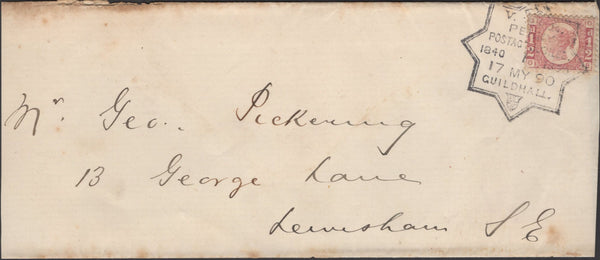 V.
PE
POSTAG
1840
17 MY 90
GUILDHALL.
Mr. Geo. Pickering
13 George Lane
Lewisham S E